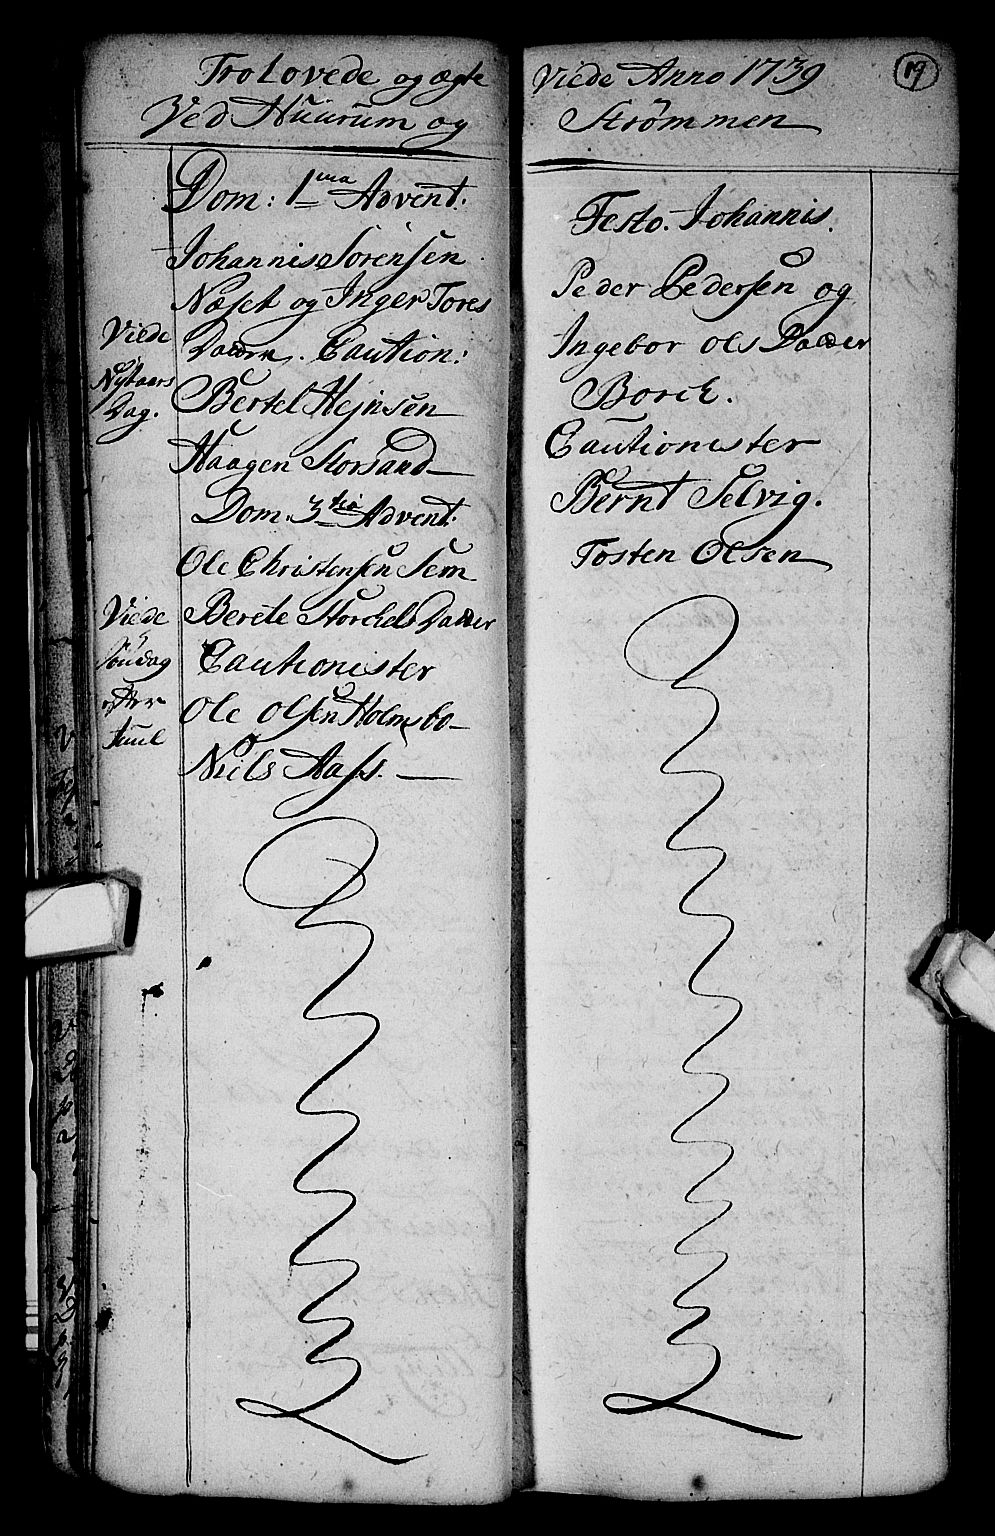 TroLovede og ægte
Ved Huurum og
Dom: 1ma Advent.
Johannis Sorensen
Næset og Inger Tores
Viede
Datter. Caution:
Nytaars
Bertel Hejnsen
Dag.
Haagen Storsand
Dom. 3tia Advent.
Ole Christensen Sem
Viede
Berete Storchels Datter
Søndag
Cautionister
efter
Ole Olsen Holmsbo
Juul
Niels Aass.
Viede Anno 1739
19
Strømmen
Festo. Johannis.
Peder Pedersen og
Ingebor Ols Datter
Borch.
Cautionister
Bernt Selvig.
Tosten Olsen